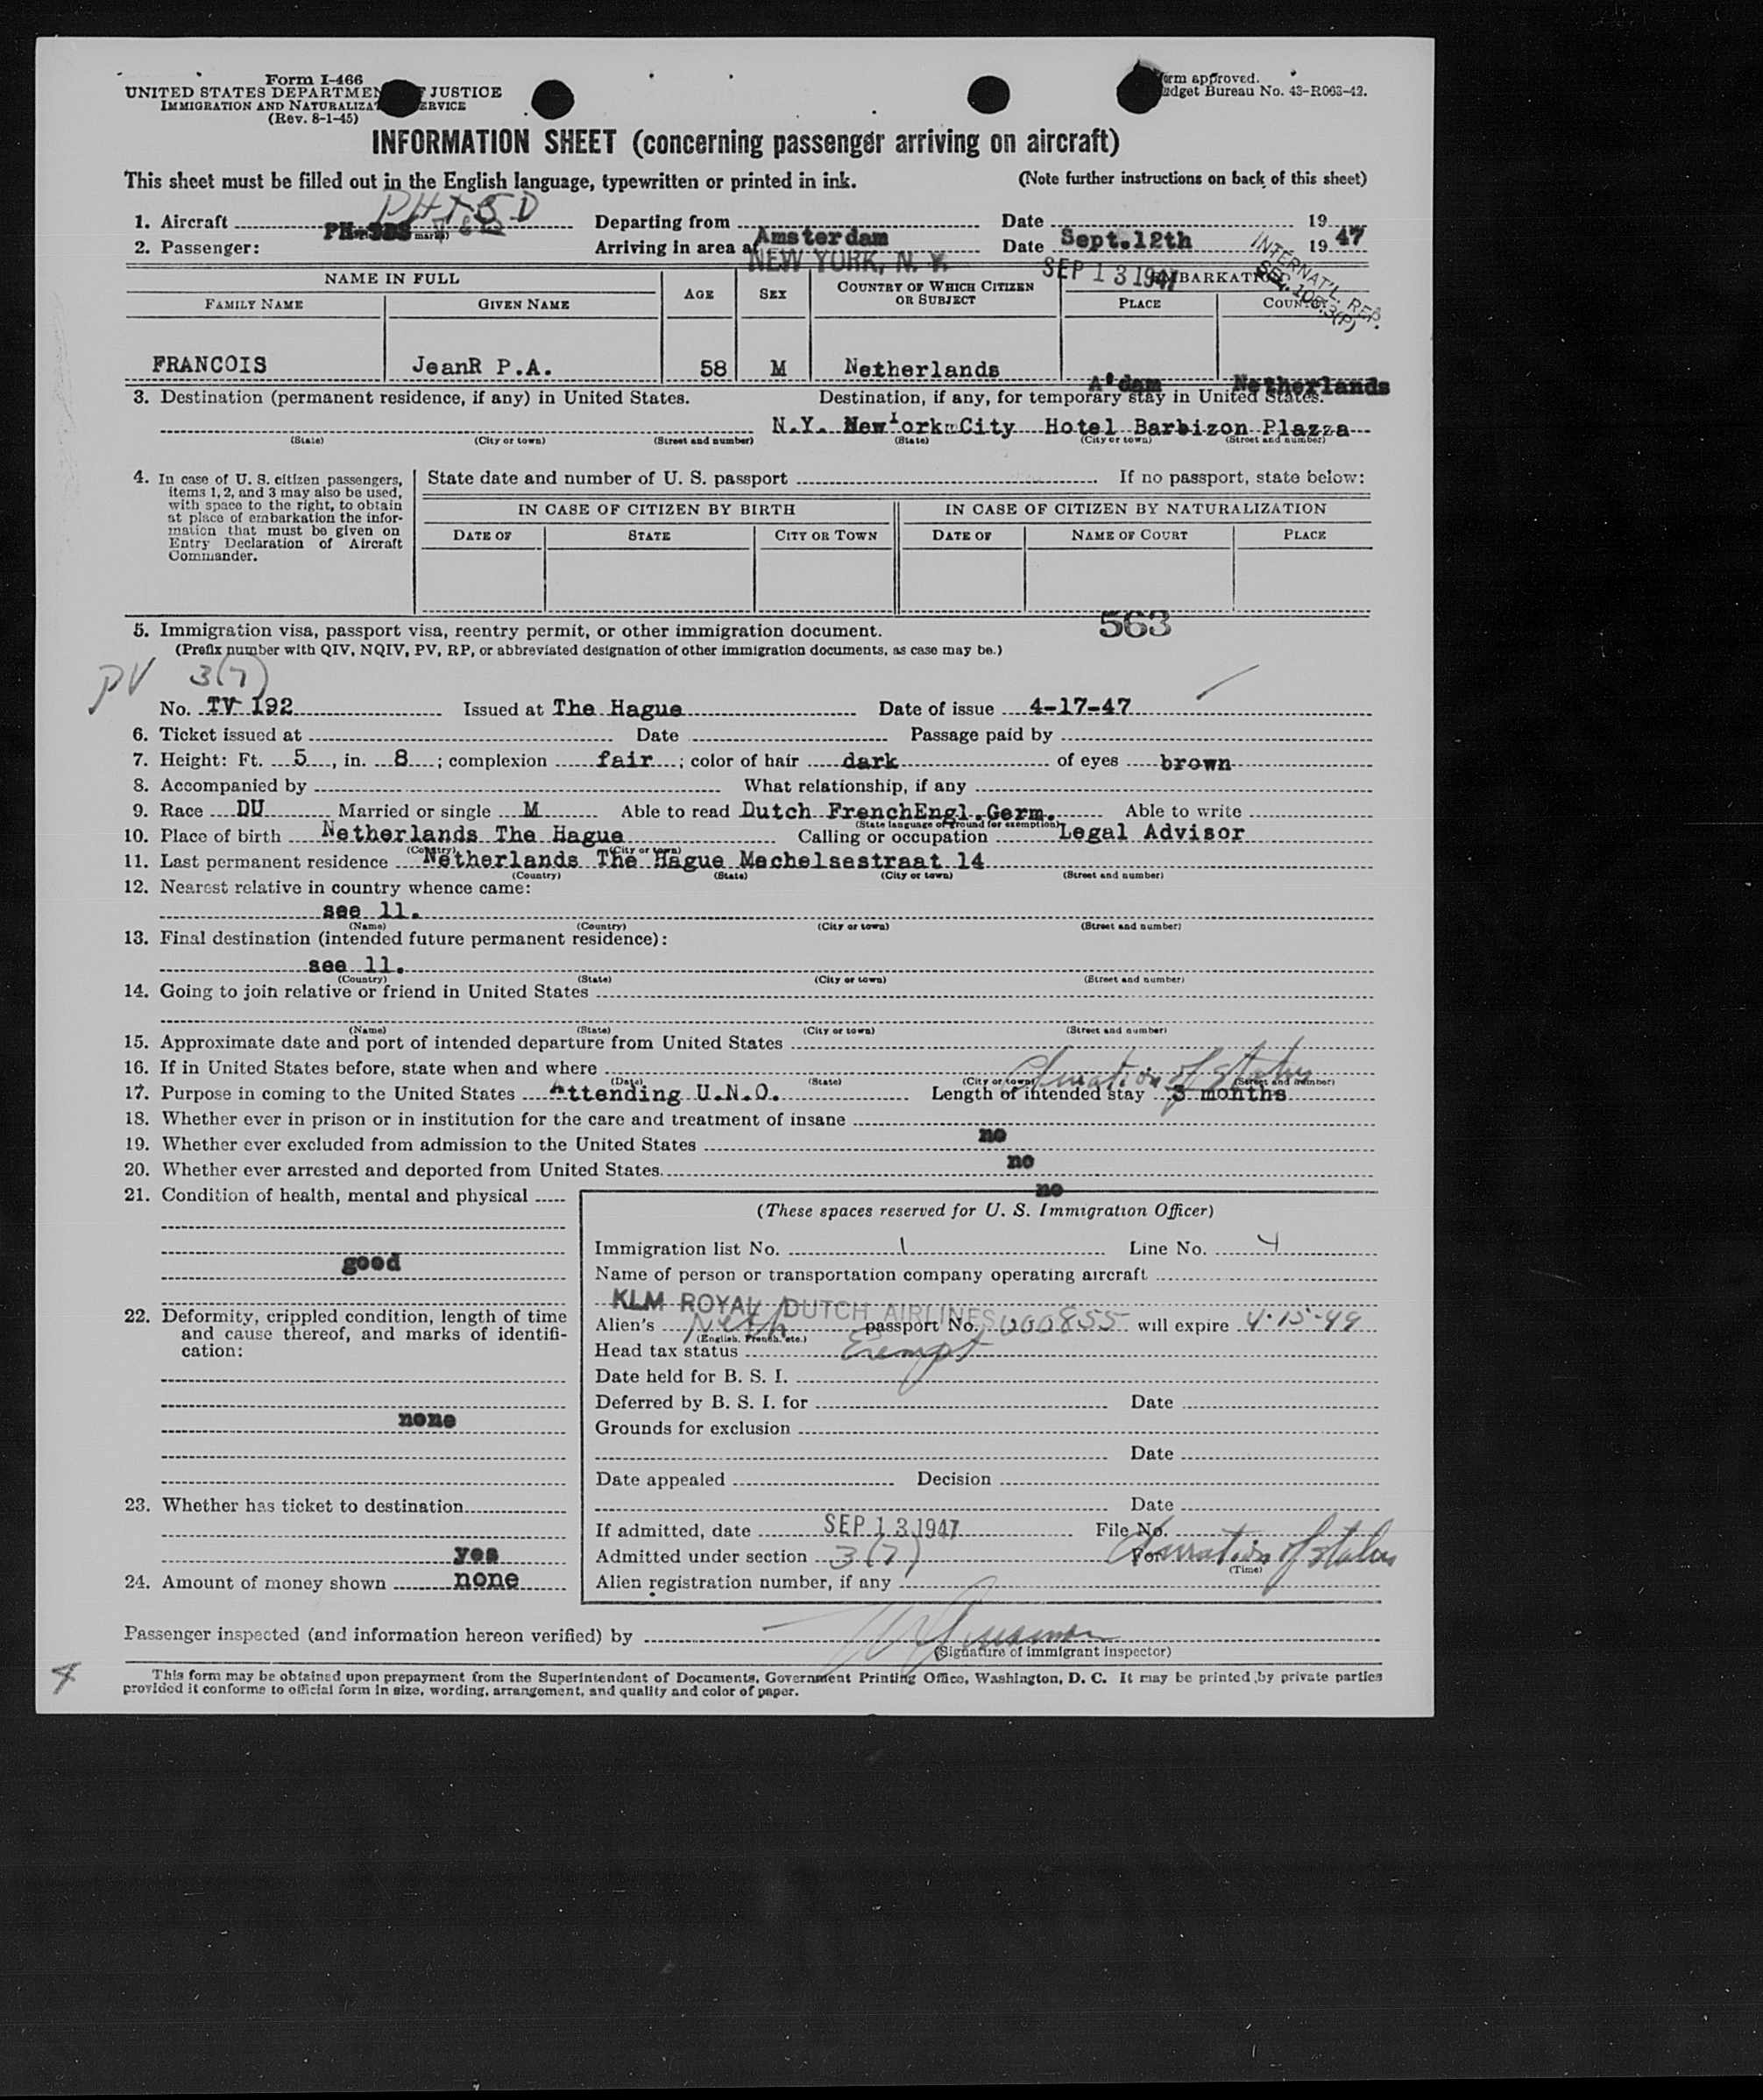 Form I-466
UNITED STATES DEPARTMENT OF JUSTICE
IMMIGRATION AND NATURALIZATION SERVICE
(Rev. 8-1-45)
Form approved.
Budget Bureau No. 43-R063-42.
INFORMATION SHEET (concerning passenger arriving on aircraft)
This sheet must be filled out in the English language, typewritten or printed in ink. (Note further instructions on back of this sheet)
1. Aircraft Departing from Amsterdam Date Sept.12th 1947
2. Passenger: Arriving in area at NEW YORK, N. Y. Date SEP 13 1947 19
INTERNAT'L. REP.
SEC. 105.3(P)
NAME IN FULL AGE SEX COUNTRY OF WHICH CITIZEN OR SUBJECT EMBARKATION
FAMILY NAME GIVEN NAME PLACE COUNTRY
FRANCOIS JeanR P.A. 58 M Netherlands A'dam Netherlands
3. Destination (permanent residence, if any) in United States. Destination, if any, for temporary stay in United States.
N.Y. New York City Hotel Barbizon Plazza
(State) (City or town) (Street and number) (State) (City or town) (Street and number)
4. In case of U. S. citizen passengers, items 1, 2, and 3 may also be used, with space to the right, to obtain at place of embarkation the information that must be given on Entry Declaration of Aircraft Commander.
State date and number of U. S. passport If no passport, state below:
IN CASE OF CITIZEN BY BIRTH IN CASE OF CITIZEN BY NATURALIZATION
DATE OF STATE CITY OR TOWN DATE OF NAME OF COURT PLACE
563
5. Immigration visa, passport visa, reentry permit, or other immigration document.
(Prefix number with QIV, NQIV, PV, RP, or abbreviated designation of other immigration documents, as case may be.)
PV 3(7)
No. TV 192 Issued at The Hague Date of issue 4-17-47
6. Ticket issued at Date Passage paid by
7. Height: Ft. 5, in. 8; complexion fair; color of hair dark of eyes brown
8. Accompanied by What relationship, if any
9. Race DU Married or single M Able to read Dutch FrenchEngl.Germ. Able to write
(State language or ground for exemption)
10. Place of birth Netherlands The Hague Calling or occupation Legal Advisor
(Country) (City or town)
11. Last permanent residence Netherlands The Hague Mechelsestraat 14
(Country) (State) (City or town) (Street and number)
12. Nearest relative in country whence came:
see 11.
(Name) (Country) (City or town) (Street and number)
13. Final destination (intended future permanent residence):
see 11.
(Country) (State) (City or town) (Street and number)
14. Going to join relative or friend in United States
(Name) (State) (City or town) (Street and number)
15. Approximate date and port of intended departure from United States
16. If in United States before, state when and where
(Date) (State) (City or town) (Street and number)
Duration of status
17. Purpose in coming to the United States Attending U.N.O. Length of intended stay 3 months
18. Whether ever in prison or in institution for the care and treatment of insane no
19. Whether ever excluded from admission to the United States no
20. Whether ever arrested and deported from United States no
21. Condition of health, mental and physical
good
22. Deformity, crippled condition, length of time and cause thereof, and marks of identification:
none
23. Whether has ticket to destination
yes
24. Amount of money shown none
(These spaces reserved for U. S. Immigration Officer)
Immigration list No. 1 Line No. 4
Name of person or transportation company operating aircraft
KLM ROYAL DUTCH AIRLINES
Alien's Neth passport No. 200855 will expire 4-15-49
(English, French, etc.)
Head tax status Exempt
Date held for B. S. I.
Deferred by B. S. I. for Date
Grounds for exclusion
Date
Date appealed Decision
Date
If admitted, date SEP 13 1947 File No.
Admitted under section 3(7) For Duration of status
(Time)
Alien registration number, if any
Passenger inspected (and information hereon verified) by
(Signature of immigrant inspector)
4
This form may be obtained upon prepayment from the Superintendent of Documents, Government Printing Office, Washington, D. C. It may be printed by private parties
provided it conforms to official form in size, wording, arrangement, and quality and color of paper.